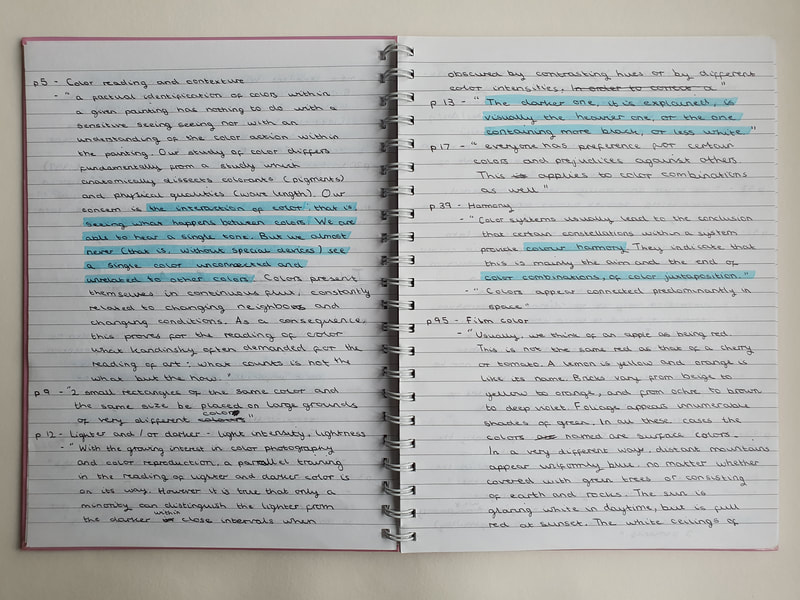 p5 - Color reading and contexture
- "a factual identification of colors within
a given painting has nothing to do with a
sensitive seeing seeing nor with an
understanding of the color action within
the painting. Our study of color differs
fundamentally from a study which
anatomically dissects colorants (pigments)
and physical qualities (wave length). Our
concern is the interaction of color", that is
seeing what happens between colors. We are
able to hear a single tone. But we almost
never (that is, without special devices) see
a single color unconnected and
unrelated to other colors. Colors present
themselves in continuous flux, constantly
related to changing neighbors and
changing conditions. As a consequence,
this proves for the reading of color
what Kandinsky often demanded for the
reading of art: what counts is not the
what but the how."
p9 - "2 small rectangles of the same color and
the same size be placed on large grounds
of very different colors"
p12 - Lighter and/or darker - light intensity, lightness
- "With the growing interest in color photography
and color reproduction, a parallel training
in the reading of lighter and darker color is
on its way. However it is true that only a
minority can distinguish the lighter from
the darker within close intervals when
obscured by contrasting hues or by different
color intensities. In order to a"
p.13 - "The darker one, it is explained, is
visually the heavier one, or the one
containing more black, or less white."
p.17 - "everyone has preference for certain
colors and prejudices against others
This is applies to color combinations
as well"
p.39 - Harmony
- "Color systems usually lead to the conclusion
that certain constellations within a system
provide colour harmony. They indicate that
this is mainly the aim and the end of
color combinations, of color juxtaposition."
- "Colors appear connected predominantly in
space"
p45 - Film color
- "Usually, we think of an apple as being red.
This is not the same red as that of a cherry
or tomato. A lemon is yellow and orange is
like its name. Bricks vary from beige to
yellow to orange, and from ochre to brown
to deep violet. Foliage appears innumerable
shades of green. In all these cases the
colors named are surface colors.
In a very different way, distant mountains
appear uniformly blue, no matter whether
covered with green trees or consisting
of earth and rocks. The sun is
glaring white in daytime, but is full
red at sunset. The white ceilings of